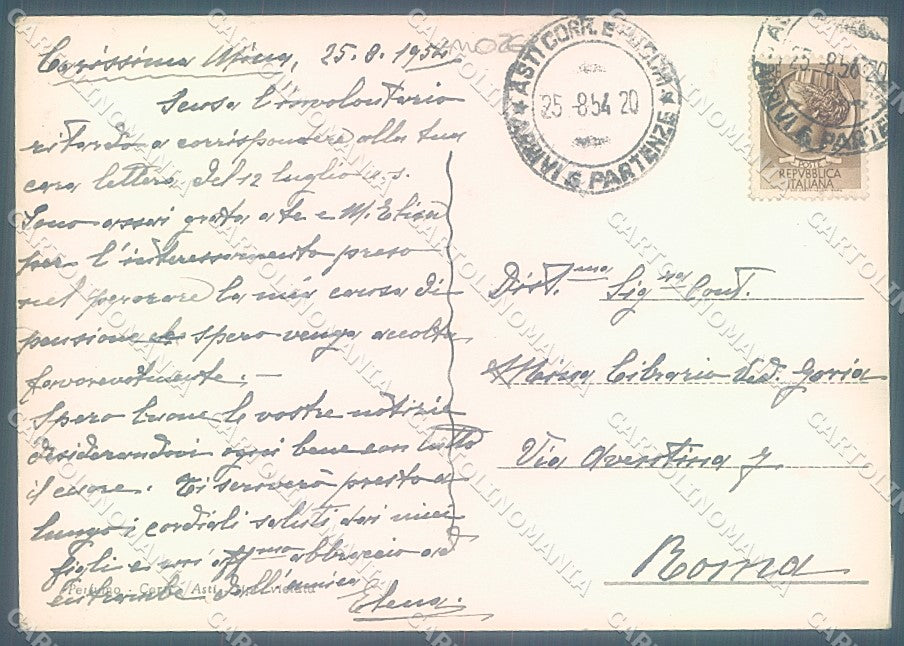 Carissima Mina, 25.8.1954
Scusa l'involontario
ritardo a corrispondere alla tua
cara lettera del 12 luglio u.s.
Sono assai grata a te e M. Elisa
per l'interessamento preso
nel la mia causa di
pensione che spero venga accolta
favorevolmente. —
Spero buone le vostre notizie
desiderandovi ogni bene con tutto
il cuore. Ti scriverò presto a
lungo i cordiali saluti dai miei
figli e un aff.mo abbraccio ad
entrambe dall'amica
Elena.
ASTI CORR. E PACCHI
25-8 54 20
ARRIVI & PARTENZE
25-8 54 20
ARRIVI & PARTENZE
POSTE
REPVBBLICA
ITALIANA
Dist.ma Sig.ra Cont.
Mina Librario Ved. Goria
Via Aventina 7
Roma
CARTOLINOMANIA